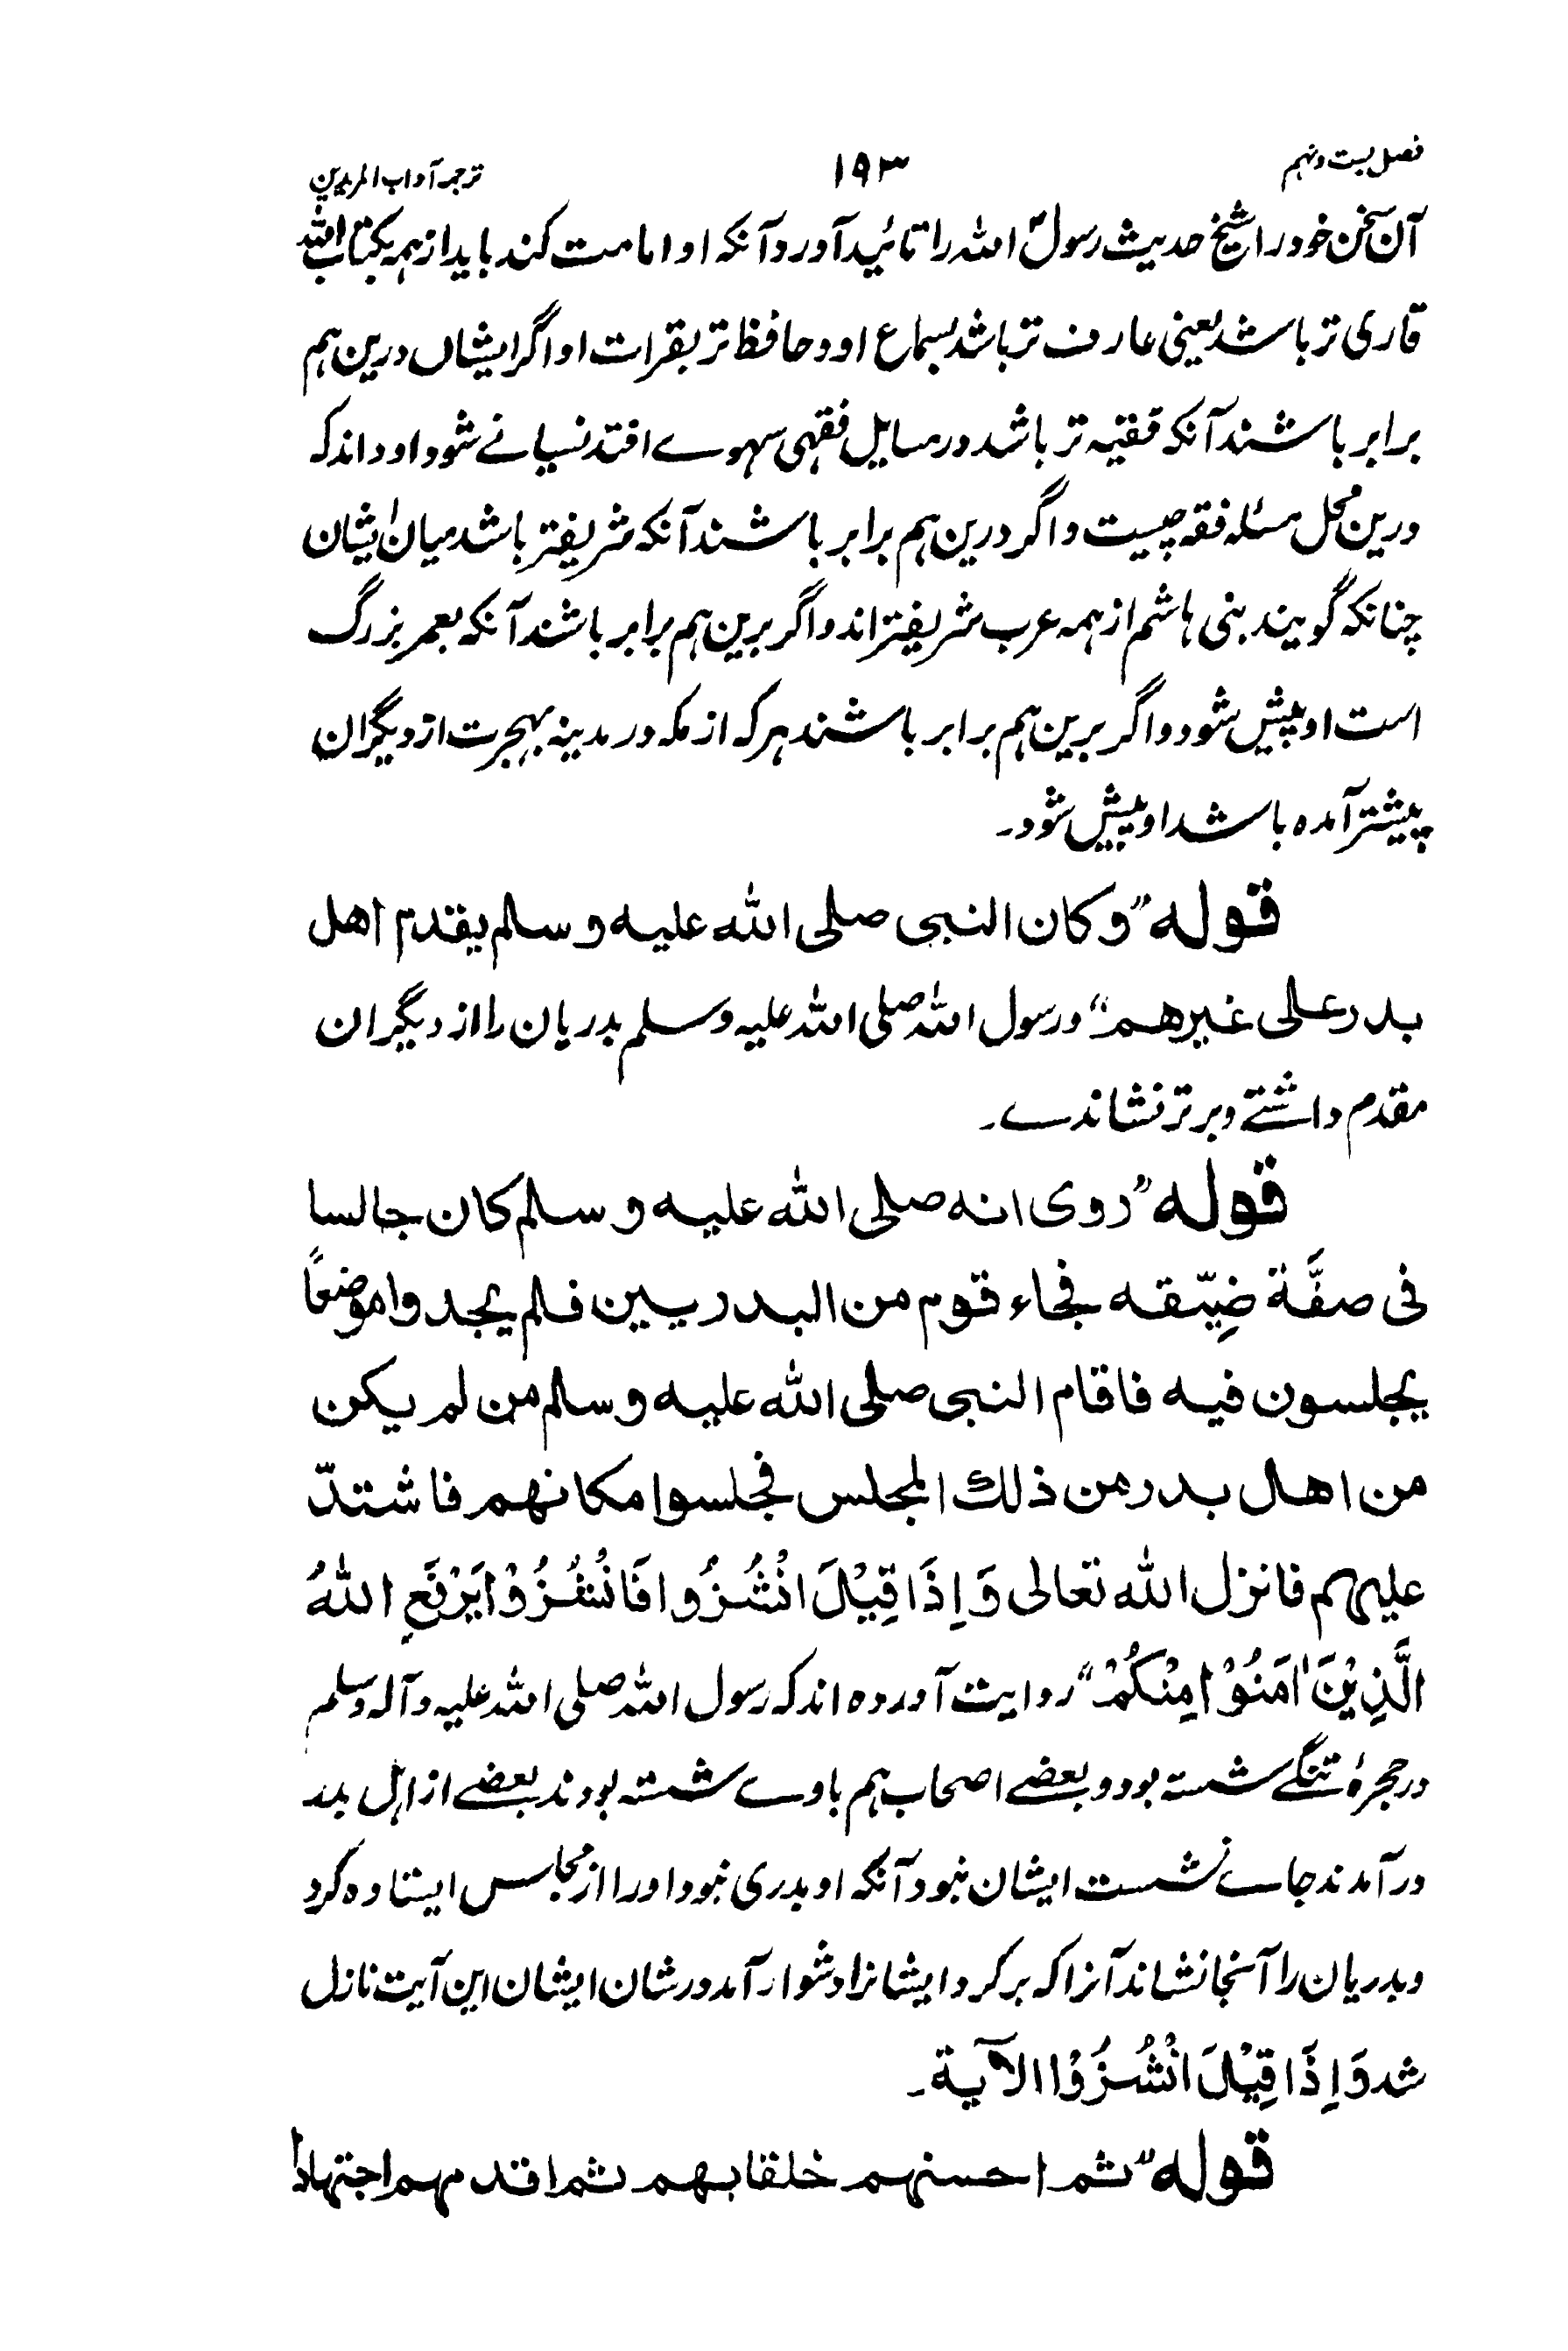 فصل بست و نہم ۱۹۳ ترجمہ آداب المریدین
آن سخن خود را شیخ حدیث رسولؐ اللہ را تائید آورد آنکہ او امامت کند باید از ہمہ بکتاب اللہ
قاری تر باشد یعنی عارف تر باشد بسماع او و حافظ تر بقرات او اگر ایشاں درین ہم
برابر باشند آنکہ فقیہ تر باشد در مسایل فقہی سہوے افتد نسیانے شود او داند کہ
درین محل مسئلہ فقہ چیست و اگر درین ہم برابر باشند آنکہ شریفتر باشد میان ایشان
چنانکہ گویند بنی ہاشم از ہمہ عرب شریفتر اند و اگر برین ہم برابر باشند آنکہ بعمر بزرگ
است او پیش شود و اگر برین ہم برابر باشند ہر کہ از مکہ در مدینہ بہجرت از دیگران
پیشتر آمدہ باشد او پیش شود۔
قولہ ”وکان النبی صلی اللہ علیہ وسلم یقدم اهل
بدر علی غیرهم“ و رسول اللہ صلی اللہ علیہ وسلم بدریان را از دیگران
مقدم داشتے و برتر نشاندے۔
قولہ ”روی انہ صلی اللہ علیہ وسلم کان جالسا
فی صفَّة ضِیّقہ فجاء قوم من البدریین فلم یجدوا موضعًا
یجلسون فیہ فاقام النبی صلی اللہ علیہ وسلم من لم یکن
من اهل بدر من ذلك المجلس فجلسوا مکانهم فاشتدّ
علیهم فانزل اللہ تعالی وَاِذَا قِیْلَ انْشُزُوا فَانْشُزُوْا یَرْفَعِ اللہُ
الَّذِیْنَ اٰمَنُوْا مِنْکُمْ“ روایت آوردہ اند کہ رسول اللہ صلی اللہ علیہ وآلہ وسلم
در حجرۂ تنگے نشستہ بود و بعضے اصحاب ہم باوے نشستہ بودند بعضے از اہل بدر
در آمدند جاے نشست ایشان نبود آنکہ او بدری نبود او را از مجلس ایستادہ کرد
و بدریان را آنجا نشاند آنرا کہ بر کرد ایشانرا دشوار آمد در شان ایشان این آیت نازل
شد وَاِذَا قِیْلَ انْشُزُوْا الآیة۔
قولہ ”ثم احسنهم خلقا بهم ثم اقدمهم اجتهادا